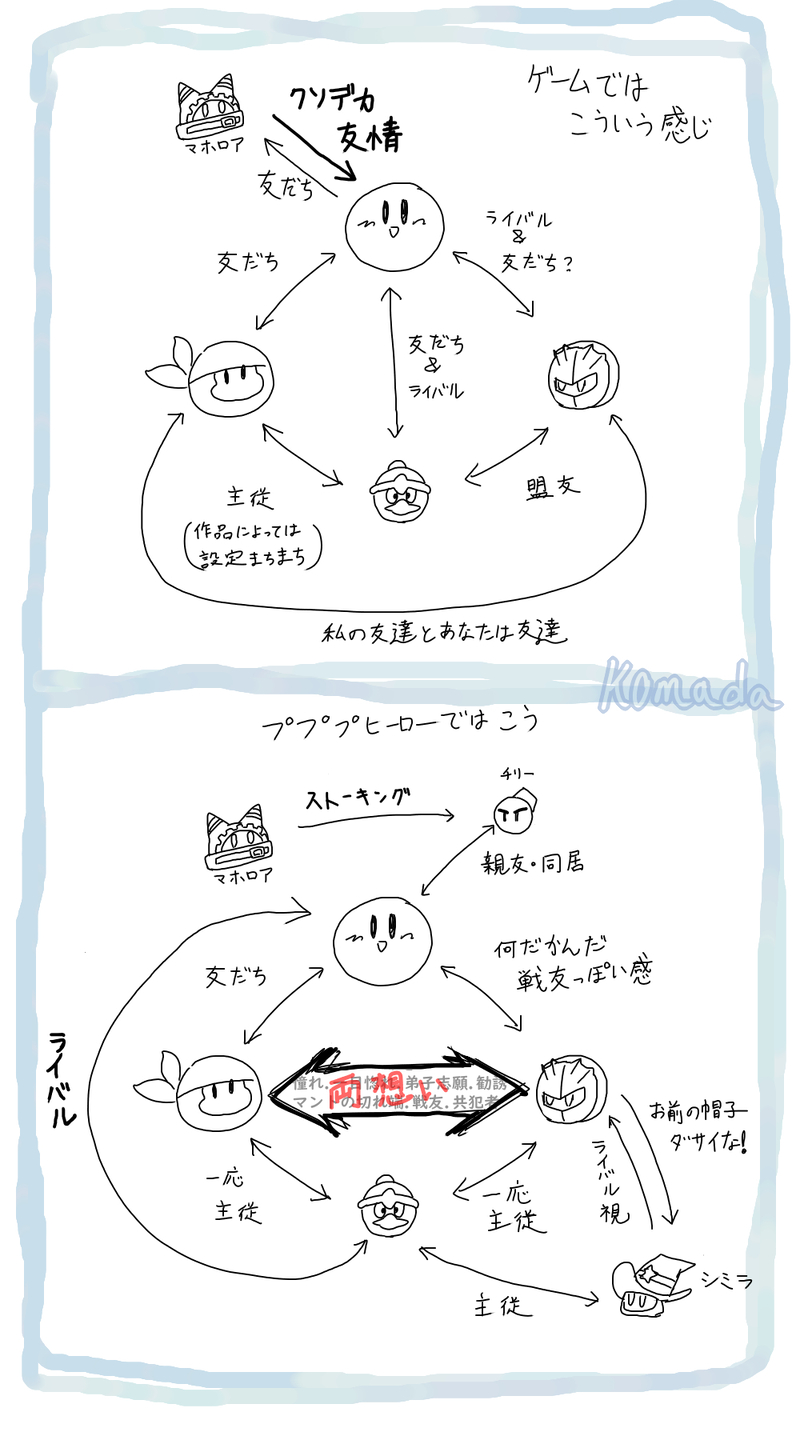 ゲームでは
こういう感じ
クソデカ
友情
マホロア
友だち
友だち
ライバル
&
友だち?
友だち
&
ライバル
主従
(作品によっては
設定まちまち)
盟友
私の友達とあなたは友達
Komada
プププヒーローではこう
チリー
ストーキング
マホロア
親友・同居
友だち
何だかんだ
戦友っぽい感
ライバル
憧れ.一目惚れ.弟子志願.勧誘
マントの切れ端.戦友.共犯者
両想い
お前の帽子
ダサイな!
ライバル視
一応
主従
一応
主従
シミラ
主従